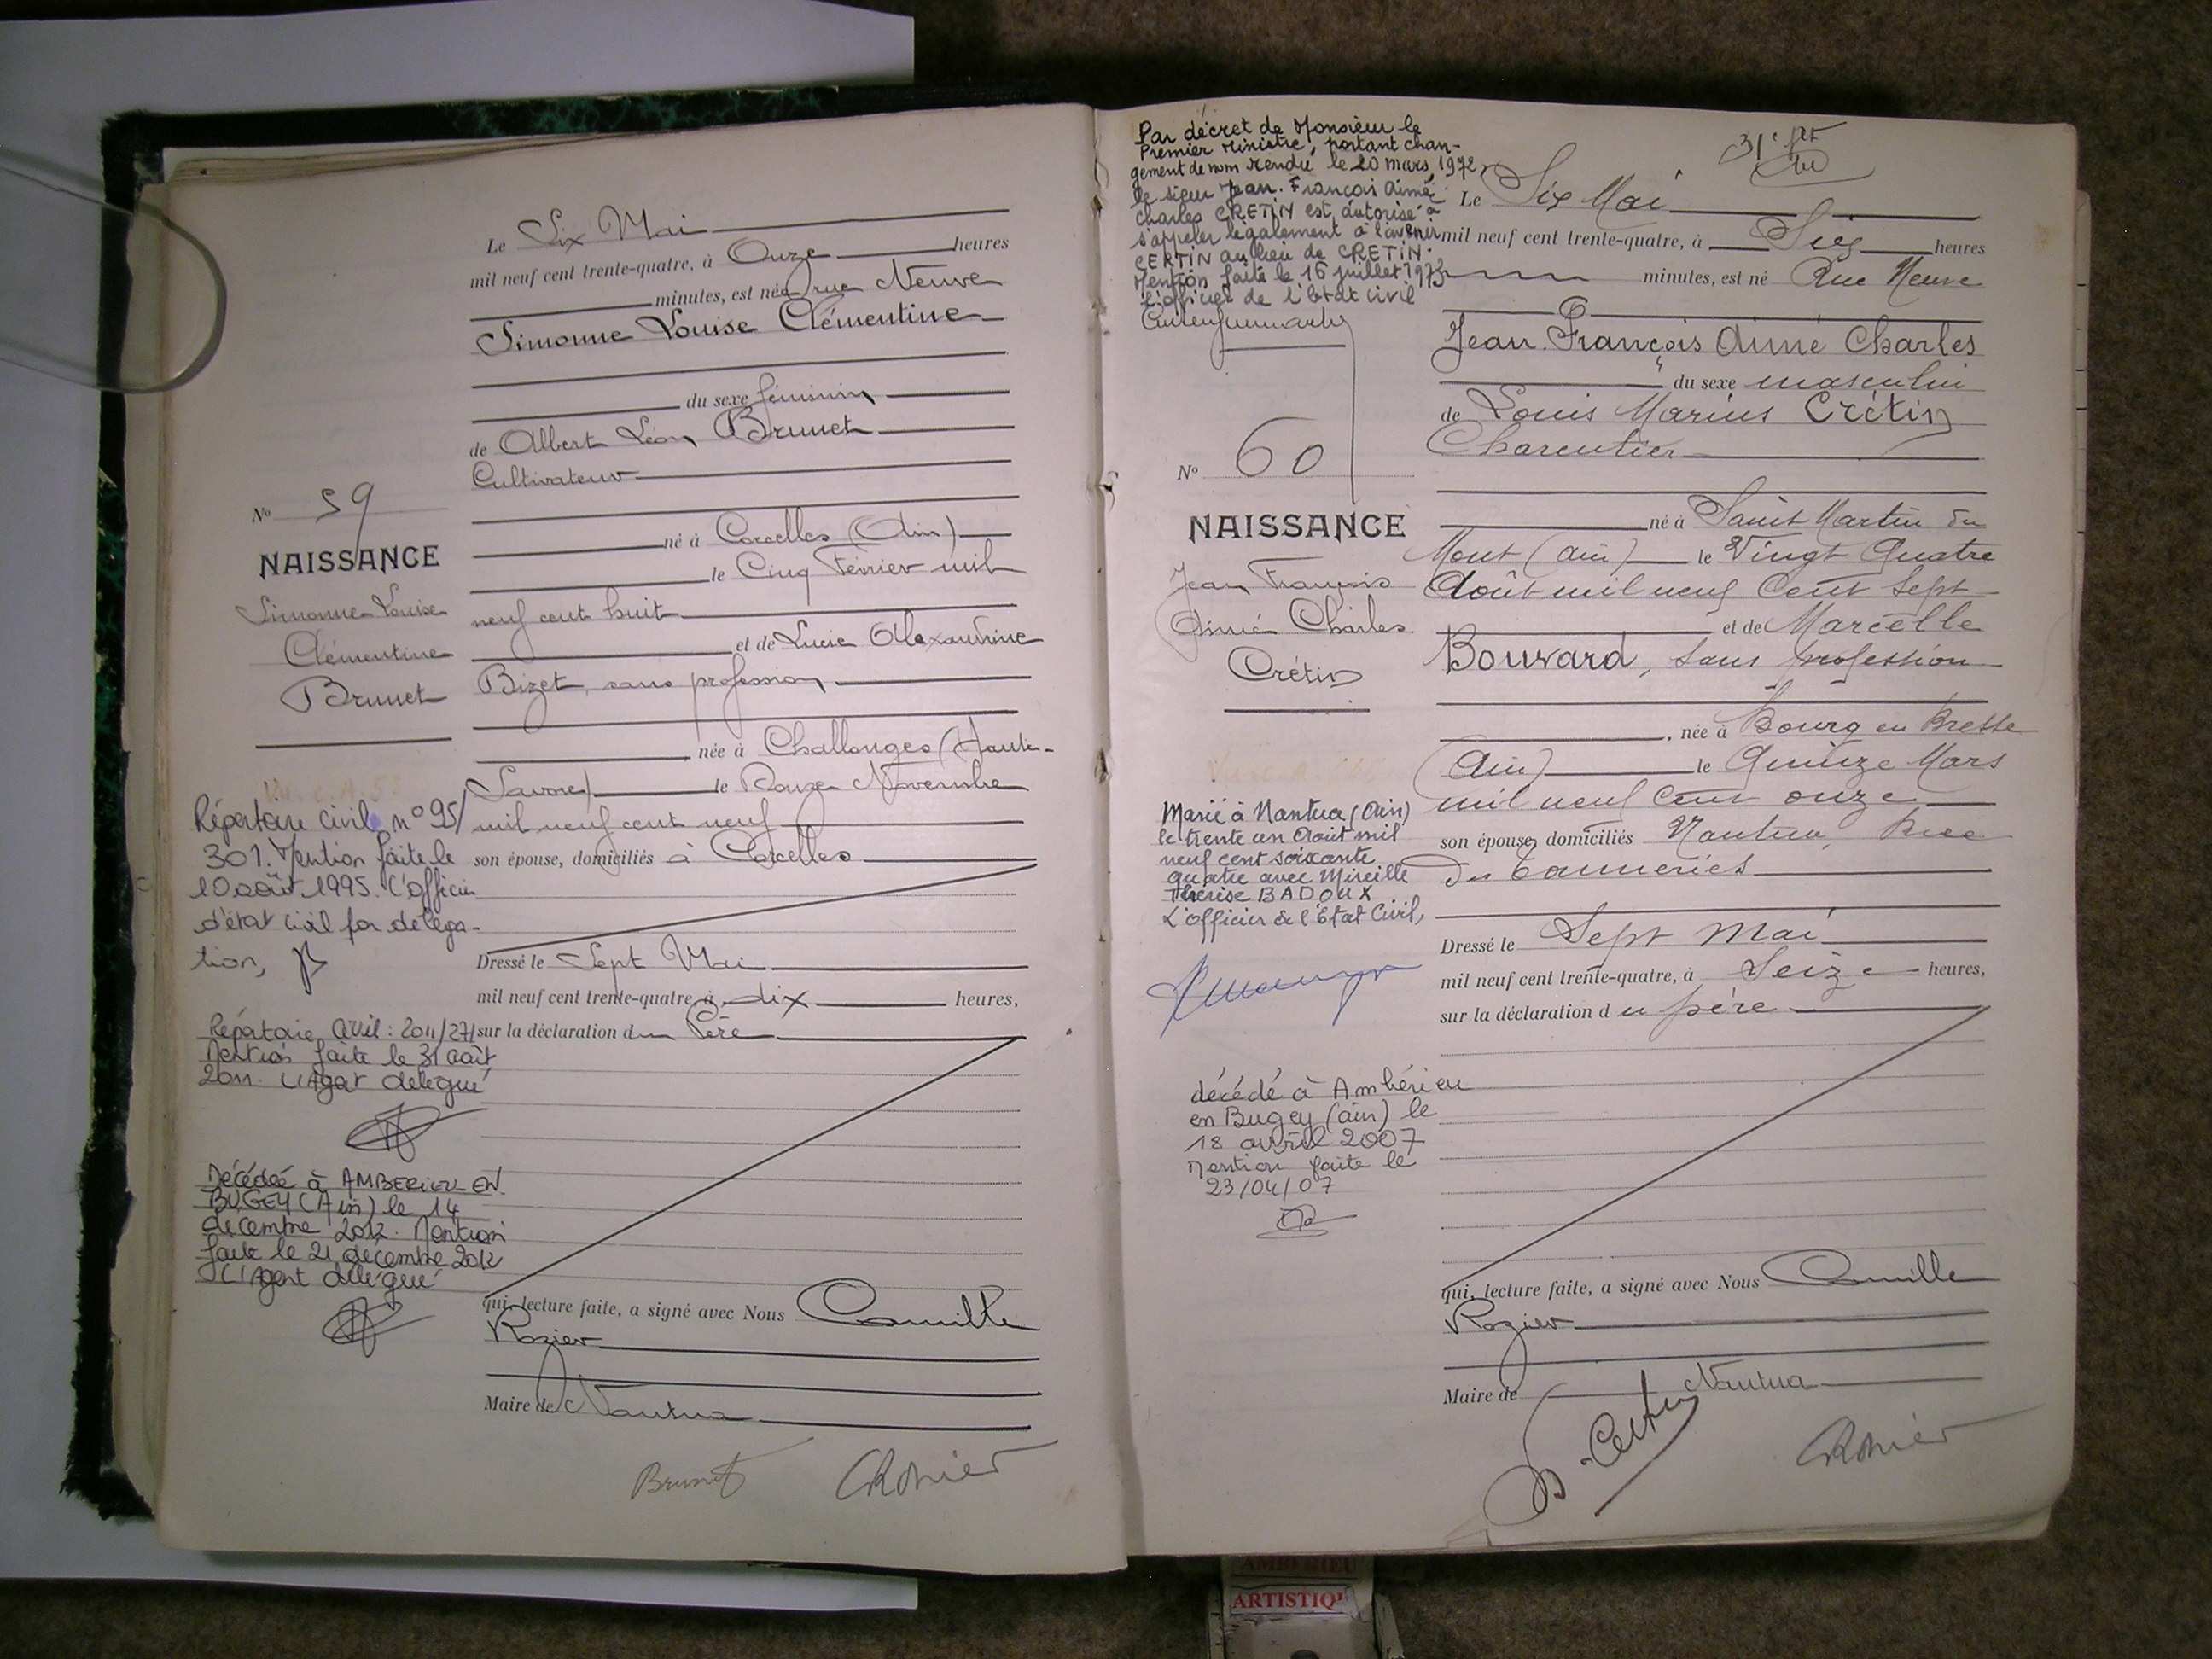 Le Six Mai
mil neuf cent trente-quatre, à Onze heures
minutes, est née rue Neuve
Simonne Louise Clémentine
du sexe féminin
de Albert Léon Brunet
Cultivateur
né à Corcelles (Ain)
le Cinq Février mil
neuf cent huit
et de Lucie Alexandrine
Bizet, sans profession
née à Challonges (Haute-
Savoie) le Douze Novembre
mil neuf cent neuf
son épouse, domiciliés à Corcelles
Dressé le Sept Mai
mil neuf cent trente-quatre, à dix heures,
sur la déclaration du Père
qui, lecture faite, a signé avec Nous Camille
Rozier
Maire de Nantua
Brunet
CRozier
No 59
NAISSANCE
Simonne Louise
Clémentine
Brunet
Répertoire civil n° 95/
301. Mention faite le
10 août 1995. L'officier
d'état civil par déléga-
tion,
Répertoire Civil : 2011/27/
Mention faite le 31 août
2011. L'Agent délégué
Décédée à AMBERIEU EN
BUGEY (Ain) le 14
décembre 2012. Mention
faite le 21 décembre 2012
L'Agent délégué
Par décret de Monsieur le
Premier Ministre, portant chan-
gement de nom rendu le 20 mars 1972,
le sieur Jean. François Aimé
Charles CRETIN est autorisé à
s'appeler légalement à l'avenir
CERTIN au lieu de CRETIN.
Mention faite le 16 juillet 1973
L'officier de l'état civil
Le Six Mai
mil neuf cent trente-quatre, à heures
minutes, est né Rue Neuve
Jean. François Aimé Charles
du sexe masculin
de Louis Marius Crétin
Charcutier
né à Saint Martin du
Mont (Ain) le Vingt Quatre
Août mil neuf Cent Sept
et de Marcelle
Bouvard, sans profession
, née à Bourg en Bresse
(Ain) le Quinze Mars
mil neuf cent onze
son épouse, domiciliés Nantua, Rue
des Tanneries
Dressé le Sept Mai
mil neuf cent trente-quatre, à Seize heures,
sur la déclaration du père
qui, lecture faite, a signé avec Nous Camille
Rozier
Maire de Nantua
CRozier
No 60
NAISSANCE
Jean François
Aimé Charles
Crétin
Marié à Nantua (Ain)
le trente un Août mil
neuf cent soixante
quatre avec Mireille
Thérèse BADOUX
L'officier de l'Etat Civil,
décédé à Ambérieu
en Bugey (ain) le
18 avril 2007
Mention faite le
23/04/07
AMBERIEU
ARTISTIQ